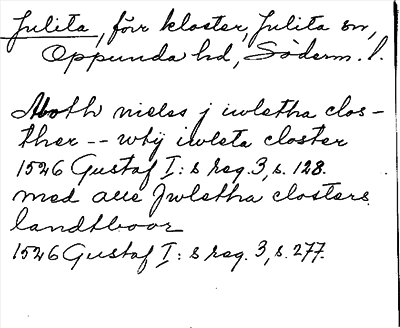 Julita, förr kloster, Julita sn,
Oppunda hd, Söderm. l.
Aboth nielss j iwletha clos-
ther -- wthj iwleta closter
1526 Gustaf I:s reg. 3, s. 128.
med alle Jwletha closters
landtboor
1526 Gustaf I:s reg. 3, s. 277.